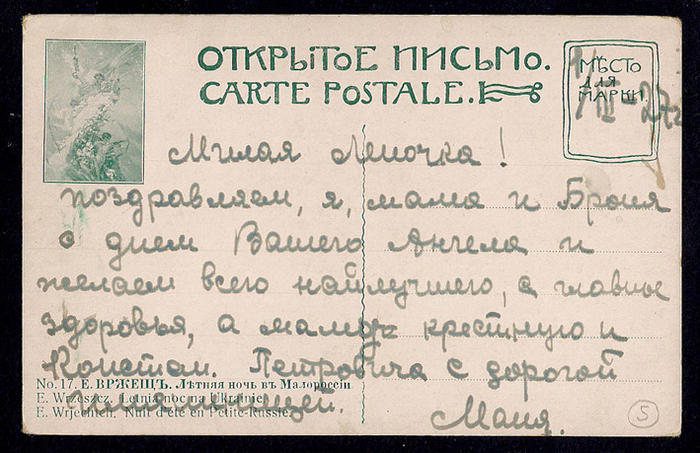 ОТКРЫТОЕ ПИСЬМО.
CARTE POSTALE.
МѢСТО
ДЛЯ
МАРКИ
1/III-27г.
Милая Леночка!
поздравляем, я, мама и Броня
с днем Вашего Ангела и
желаем всего найлучшего, а главное
здоровья, а мамоч крестную и
Констан. Петровича с дорогой
имянинницей.
Маня.
No. 17. Е. ВРЖЕЩЪ. Лѣтняя ночь въ Малороссіи
E. Wrzeszcz. Letnia noc na Ukrainie
E. Wrjechtch. Nuit d'été en Petite-Russie.
5